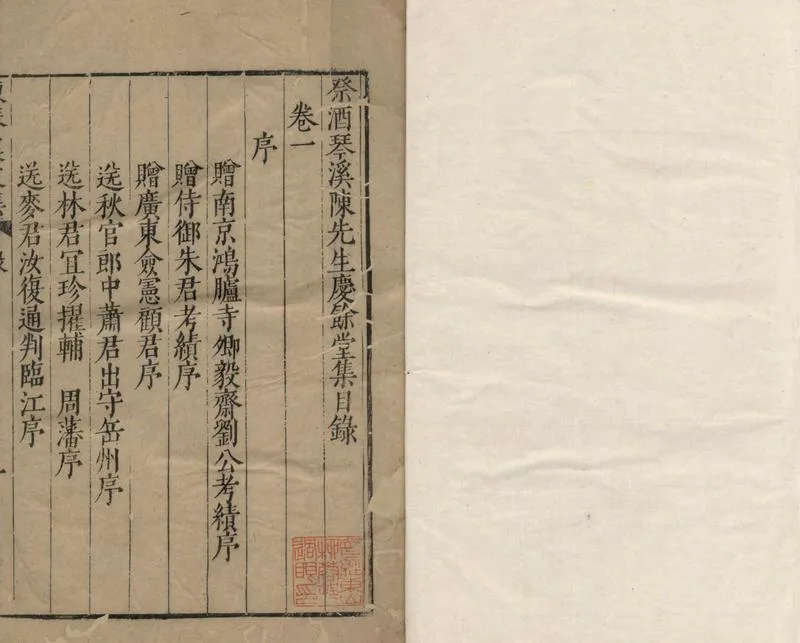 祭酒琴溪陳先生慶餘堂集目錄
卷一
序
贈南京鴻臚寺卿毅齋劉公考績序
贈侍御朱君考績序
贈廣東僉憲顧君序
送秋官郎中蕭君出守岳州序
送林君宜珍擢輔　周藩序
送麥君汝復通判臨江序